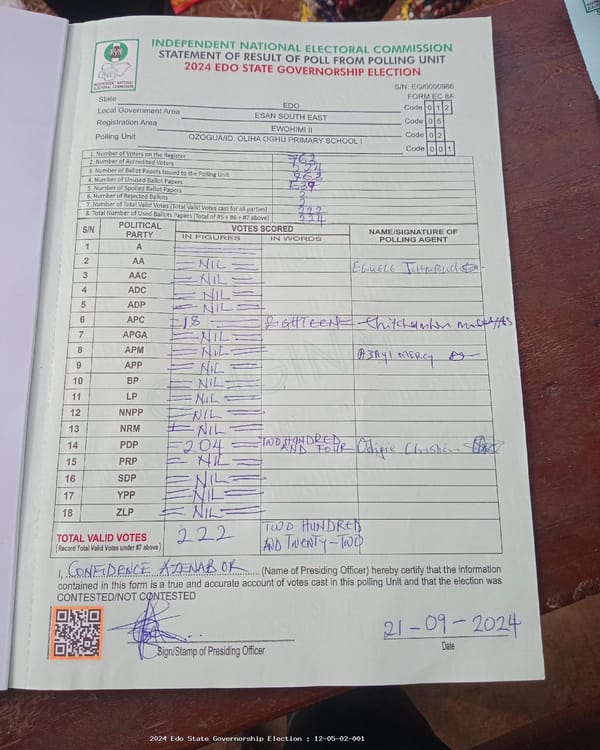 INDEPENDENT NATIONAL ELECTORAL COMMISSION
STATEMENT OF RESULT OF POLL FROM POLLING UNIT
2024 EDO STATE GOVERNORSHIP ELECTION
INDEPENDENT NATIONAL ELECTORAL COMMISSION
S/N: EG/0000986
FORM EC 8A
State EDO Code 0 1 2
Local Government Area ESAN SOUTH EAST Code 0 5
Registration Area EWOHIMI II Code 0 2
Polling Unit OZOGUA/ID. OLIHA OGHU PRIMARY SCHOOL I Code 0 0 1
1. Number of Voters on the Register 763
2. Number of Accredited Voters 224
3. Number of Ballot Papers Issued to the Polling Unit 763
4. Number of Unused Ballot Papers 539
5. Number of Spoiled Ballot Papers
6. Number of Rejected Ballots 2
7. Number of Total Valid Votes (Total Valid Votes cast for all parties) 222
8. Total Number of Used Ballots Papers (Total of #5 + #6 + #7 above) 224
S/N POLITICAL PARTY VOTES SCORED NAME/SIGNATURE OF POLLING AGENT
IN FIGURES IN WORDS
1 A
2 AA NIL EGUELE JOHNBULL
3 AAC NIL
4 ADC NIL
5 ADP NIL
6 APC 18 EIGHTEEN
7 APGA NIL
8 APM NIL AJAYI MERCY
9 APP NIL
10 BP NIL
11 LP NIL
12 NNPP NIL
13 NRM NIL
14 PDP 204 TWO HUNDRED AND FOUR Odigie Christian
15 PRP NIL
16 SDP NIL
17 YPP NIL
18 ZLP NIL
TOTAL VALID VOTES 222 TWO HUNDRED AND TWENTY-TWO
(Record Total Valid Votes under #7 above)
I, CONFIDENCE AZENABOR (Name of Presiding Officer) hereby certify that the information
contained in this form is a true and accurate account of votes cast in this polling Unit and that the election was
CONTESTED/NOT CONTESTED
21-09-2024
Sign/Stamp of Presiding Officer Date
2024 Edo State Governorship Election : 12-05-02-001